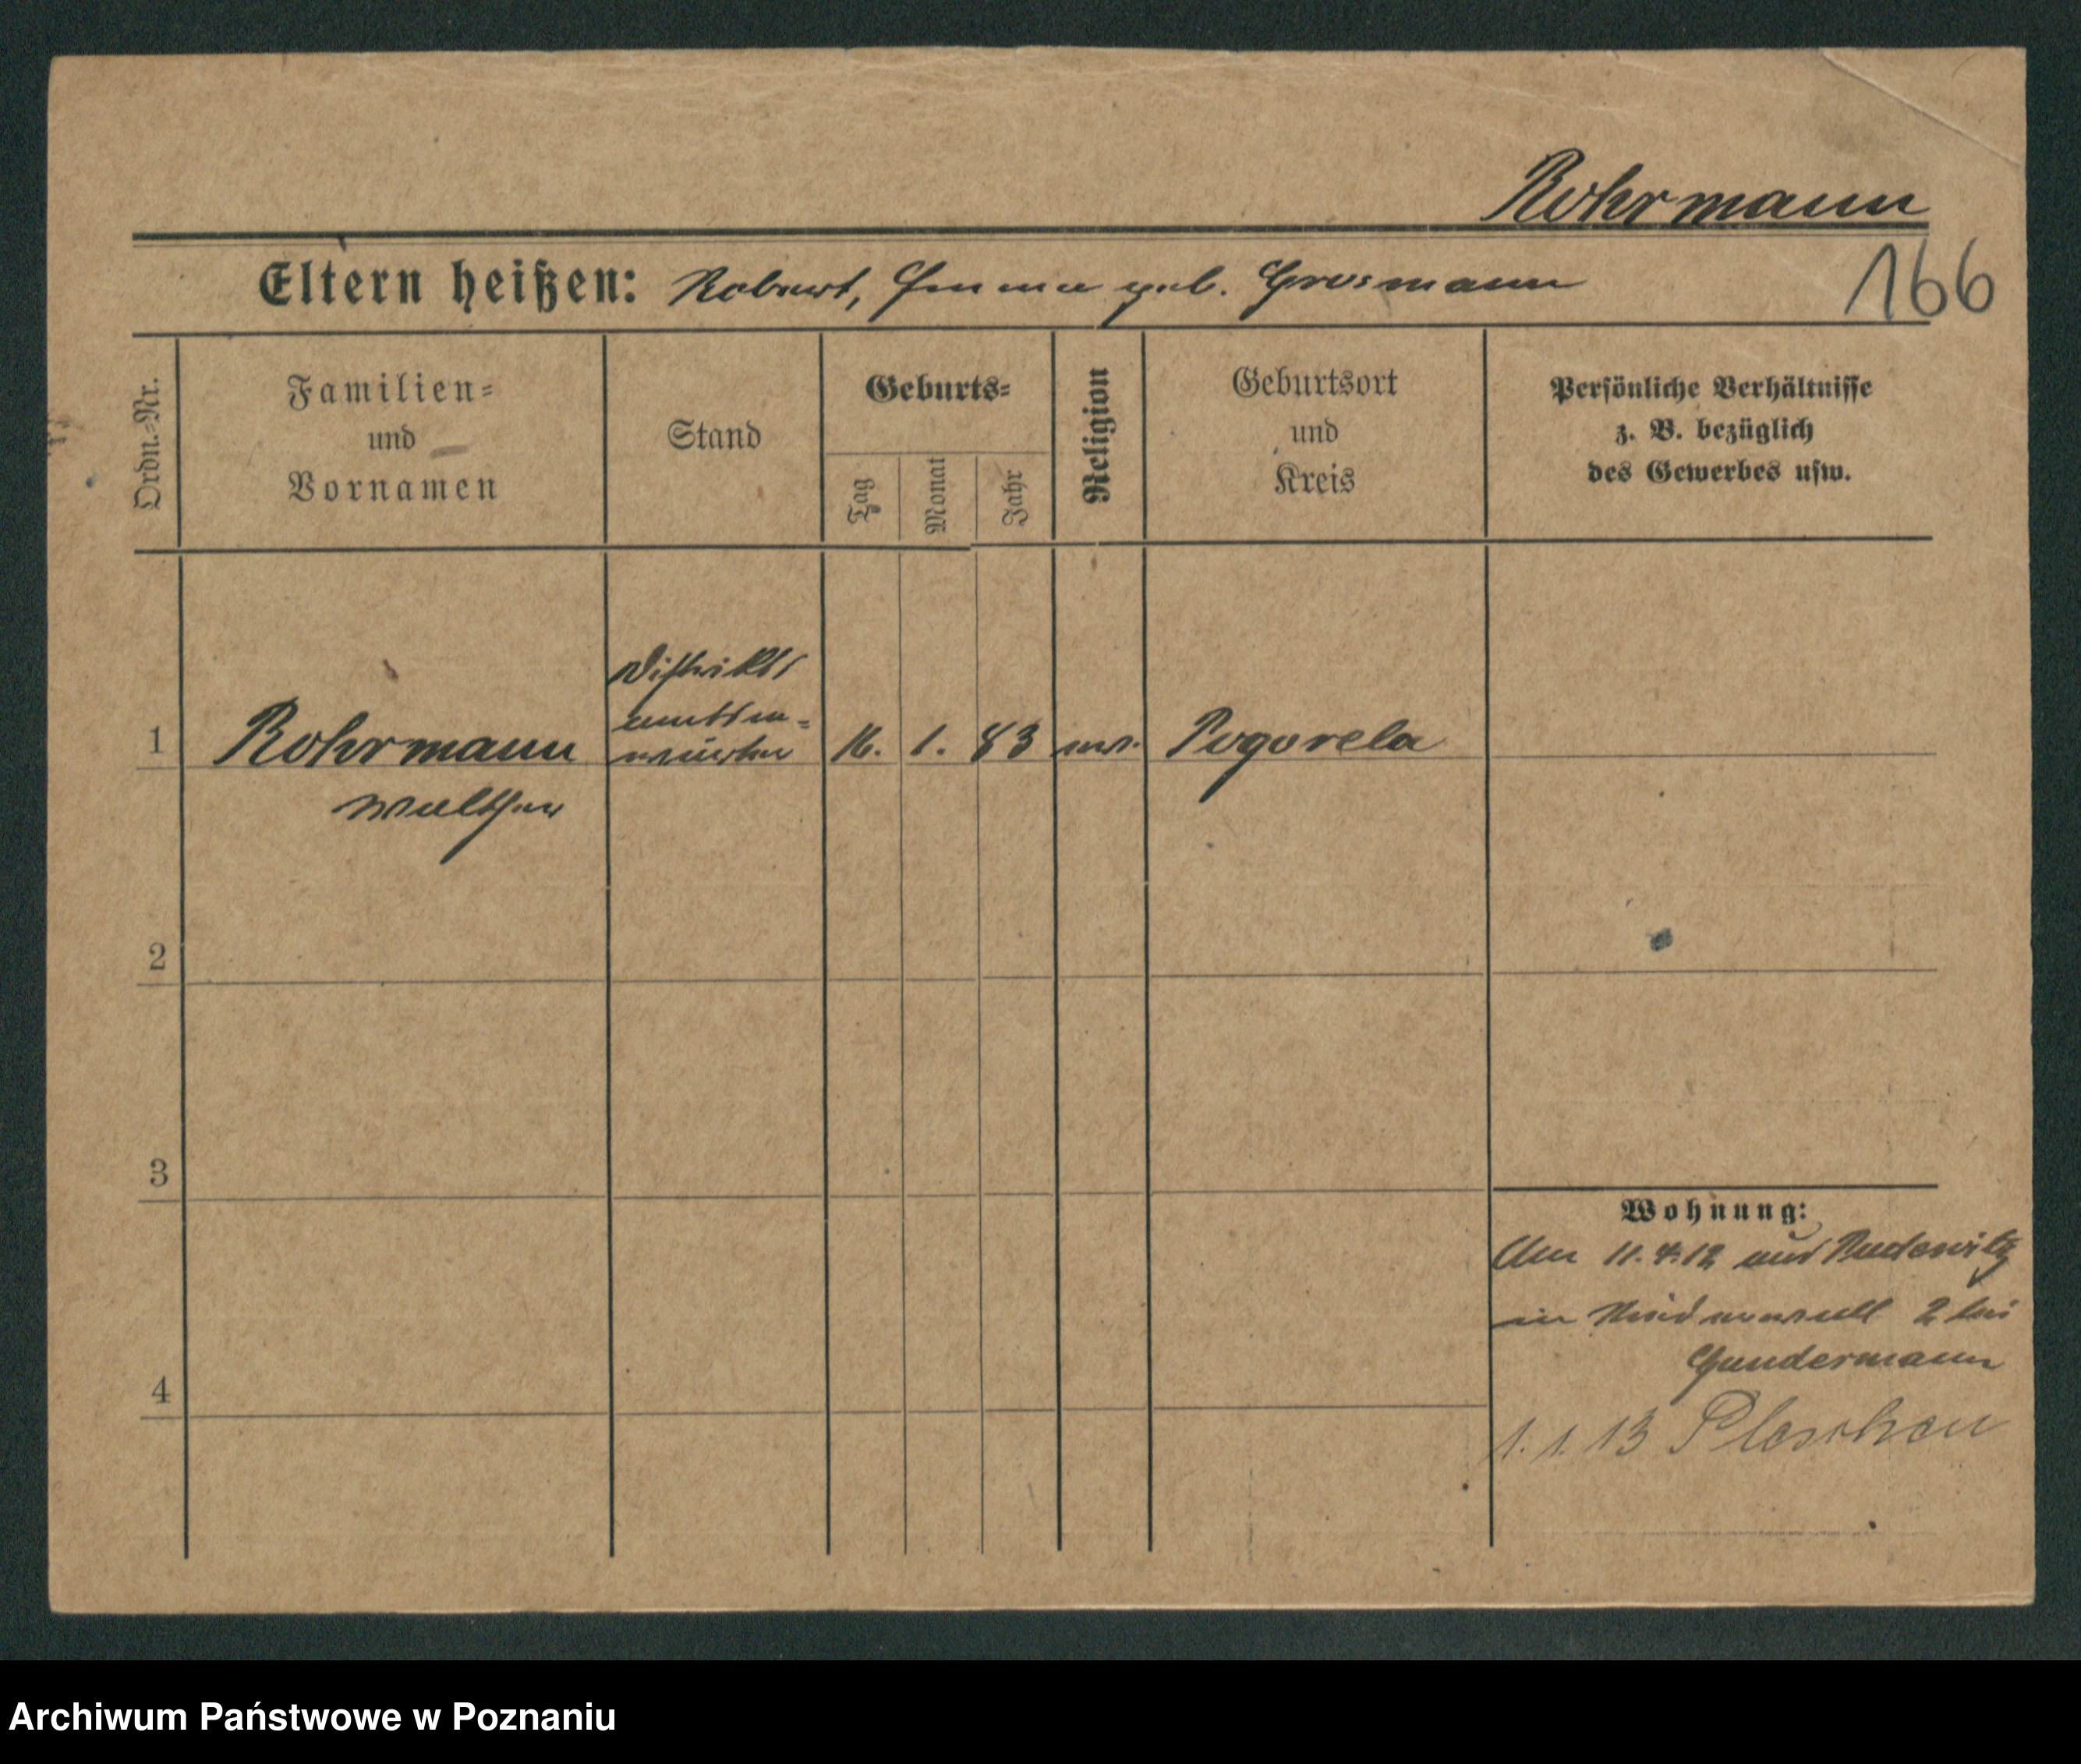 Rohrmann
166
Eltern heißen: Robert, Emma geb. Grosmann
Ordn.-Nr.
Familien-
und
Vornamen
Stand
Geburts-
Tag
Monat
Jahr
Religion
Geburtsort
und
Kreis
Persönliche Verhältnisse
z. B. bezüglich
des Gewerbes usw.
1
Rohrmann
Walther
Distrikts
amtsan-
wärter
16. 1. 83
ev.
Pogorela
2
3
4
Wohnung:
Am 11. 4. 12 aus Pudewitz
in 2 bei
Gundermann
1. 1. 13 Pleschen
Archiwum Państwowe w Poznaniu